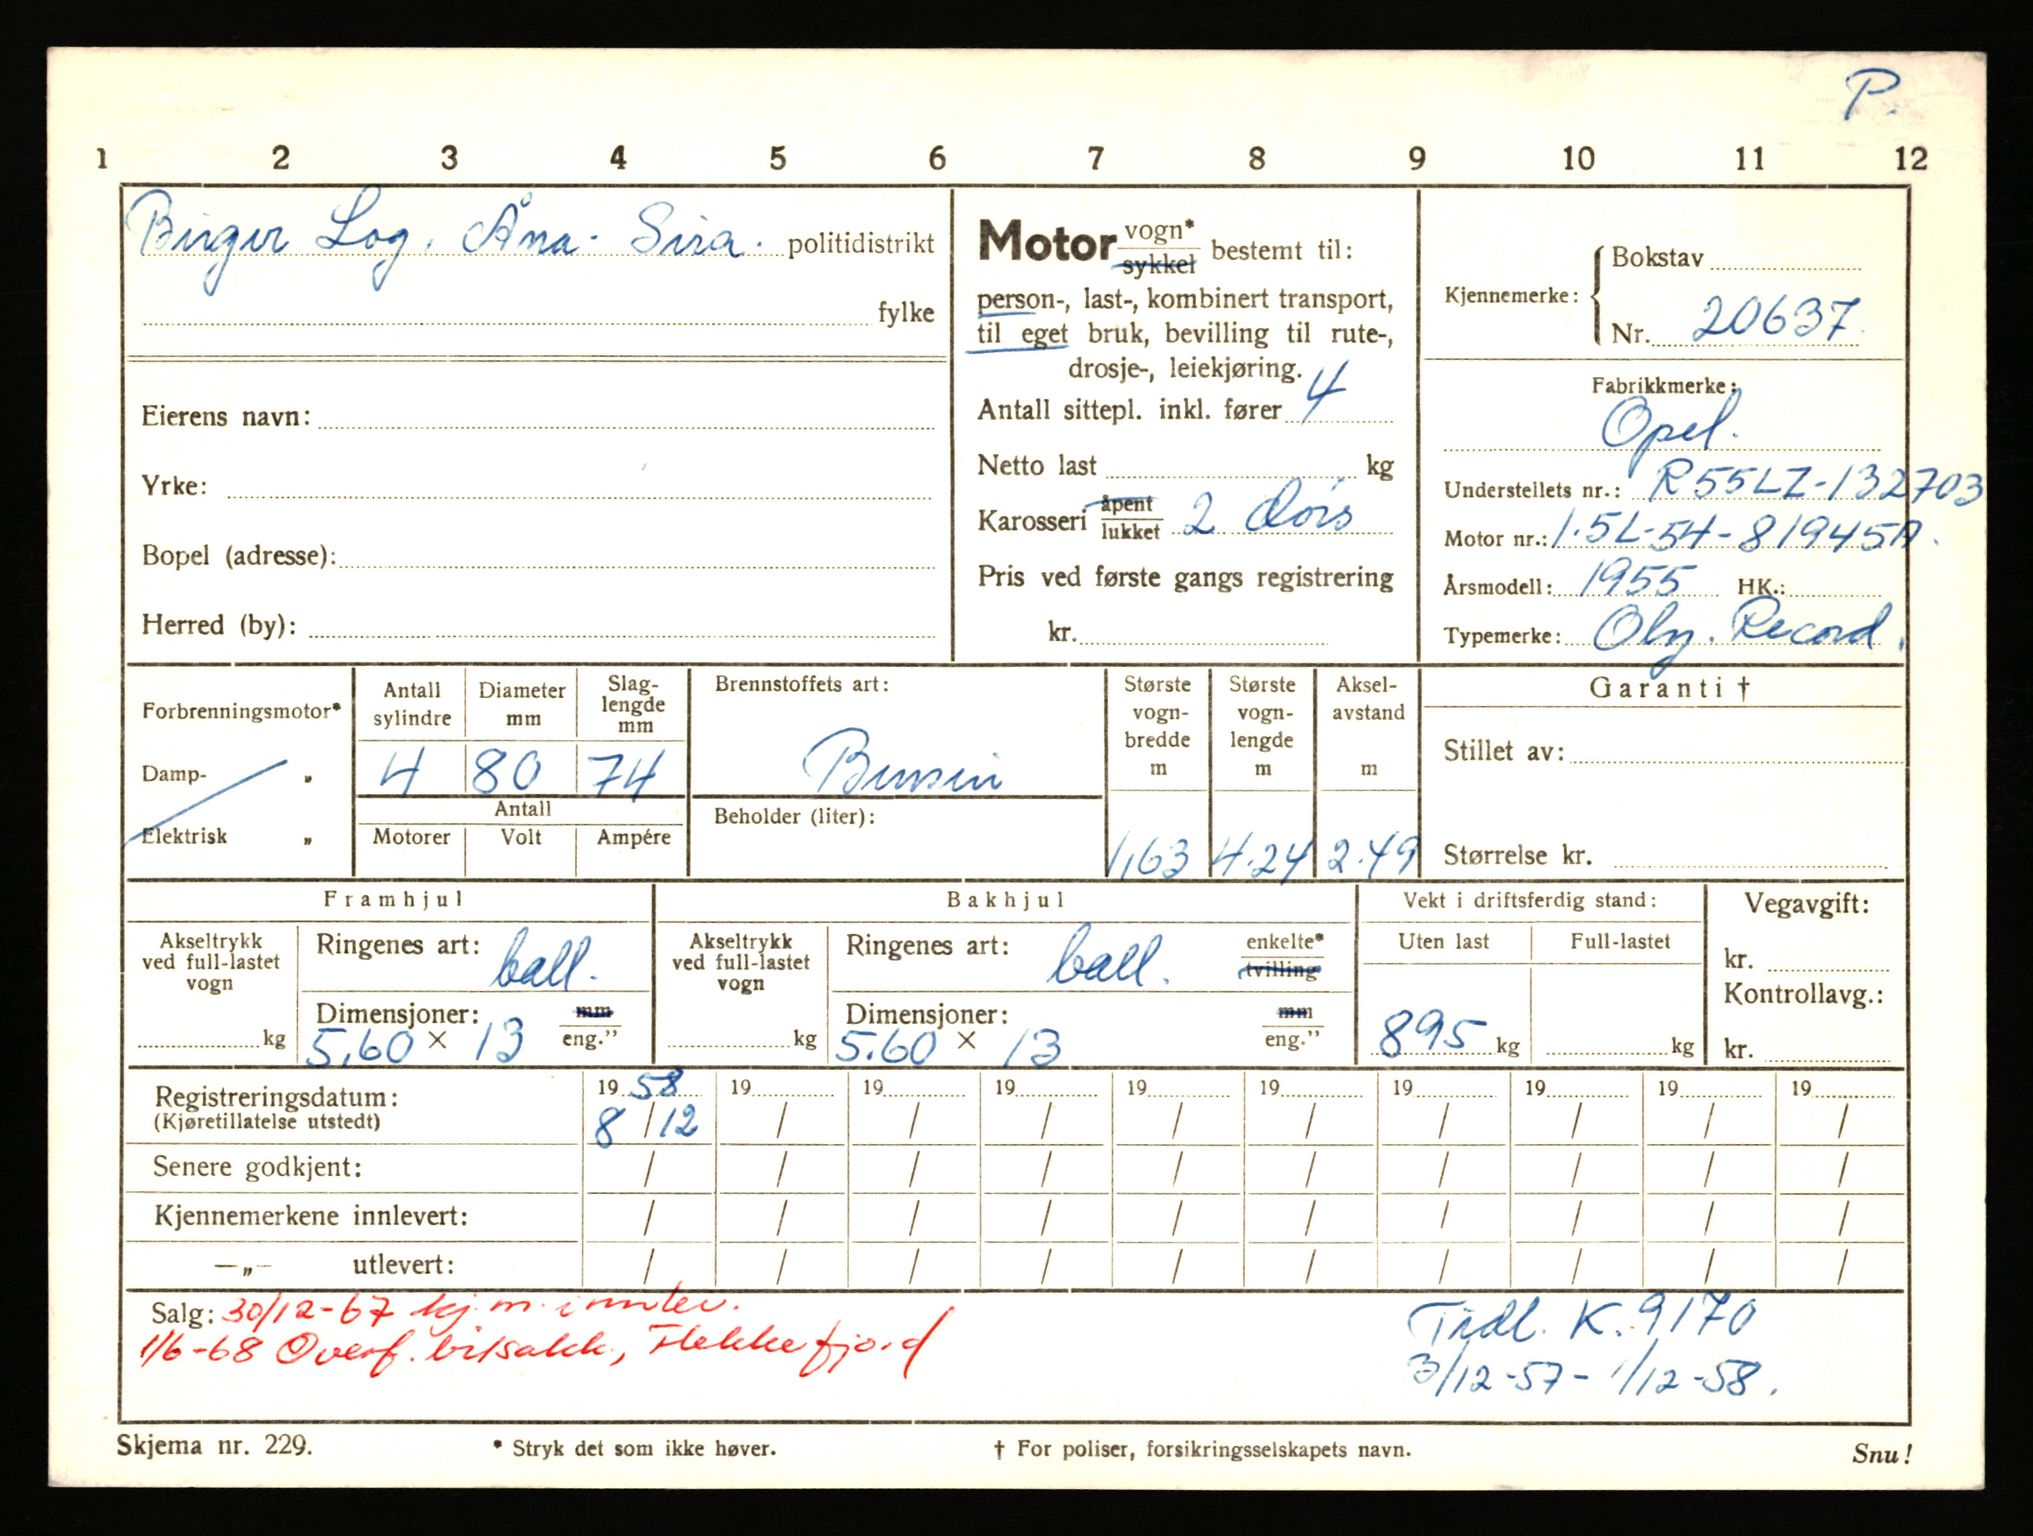 P.
1 2 3 4 5 6 7 8 9 10 11 12
Birger Log. Åna-Sira. politidistrikt
fylke
Eierens navn:
Yrke:
Bopel (adresse):
Herred (by):
Motor vogn* sykkel bestemt til:
person-, last-, kombinert transport,
til eget bruk, bevilling til rute-,
drosje-, leiekjøring.
Antall sittepl. inkl. fører 4
Netto last kg
Karosseri åpent lukket 2 dørs
Pris ved første gangs registrering
kr.
Kjennemerke: { Bokstav
Nr. 20637
Fabrikkmerke:
Opel.
Understellets nr.: R55LZ-132703
Motor nr.: 1.5L-54-81945A.
Årsmodell: 1955 HK.:
Typemerke: Oly. Record.
Forbrenningsmotor*
Damp- "
Elektrisk "
Antall sylindre Diameter mm Slag-lengde mm
4 80 74
Antall
Motorer Volt Ampére
Brennstoffets art:
Bensin
Beholder (liter):
Største vogn-bredde m Største vogn-lengde m Aksel-avstand m
1,63 4.24 2.49
Garanti †
Stillet av:
Størrelse kr.
Framhjul
Akseltrykk ved full-lastet vogn
kg
Ringenes art: ball.
Dimensjoner: mm
5.60 × 13 eng."
Bakhjul
Akseltrykk ved full-lastet vogn
kg
Ringenes art: ball. enkelte* tvilling
Dimensjoner: mm
5.60 × 13 eng."
Vekt i driftsferdig stand:
Uten last Full-lastet
895 kg kg
Vegavgift:
kr.
Kontrollavg.:
kr.
Registreringsdatum: 19 58 19 19 19 19 19 19 19 19 19
(Kjøretillatelse utstedt) 8/12 / / / / / / / / /
Senere godkjent: / / / / / / / / / /
Kjennemerkene innlevert: / / / / / / / / / /
—„— utlevert: / / / / / / / / / /
Salg: 30/12-67 kj.m. innlev.
1/6-68 Overf. bilsakk., Flekkefjord
Tidl. K. 9170
3/12-57 - 1/12-58.
Skjema nr. 229. * Stryk det som ikke høver. † For poliser, forsikringsselskapets navn. Snu!